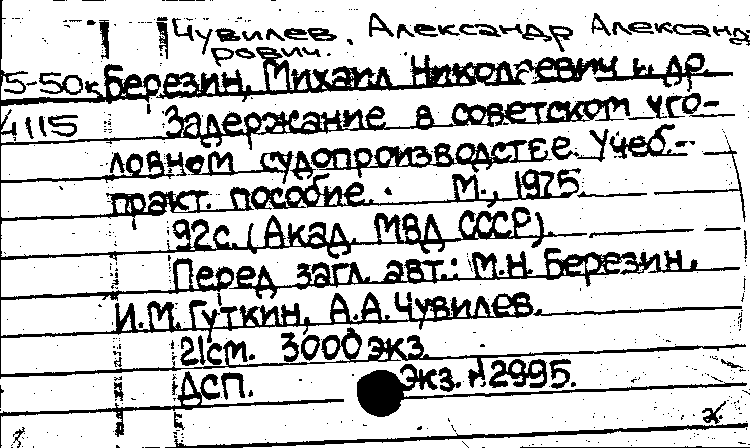 Чувилев, Александр Александ
рович.
5-50к Березин, Михаил Николаевич и др.
4115 Задержание в советском уго-
ловном судопроизводстве. Учеб.-
практ. пособие. М., 1975.
92с. (Акад. МВД СССР).
Перед загл. авт.: М.Н. Березин,
И.М. Гуткин, А.А. Чувилев.
21см. 3000 экз.
ДСП. Экз. №2995.